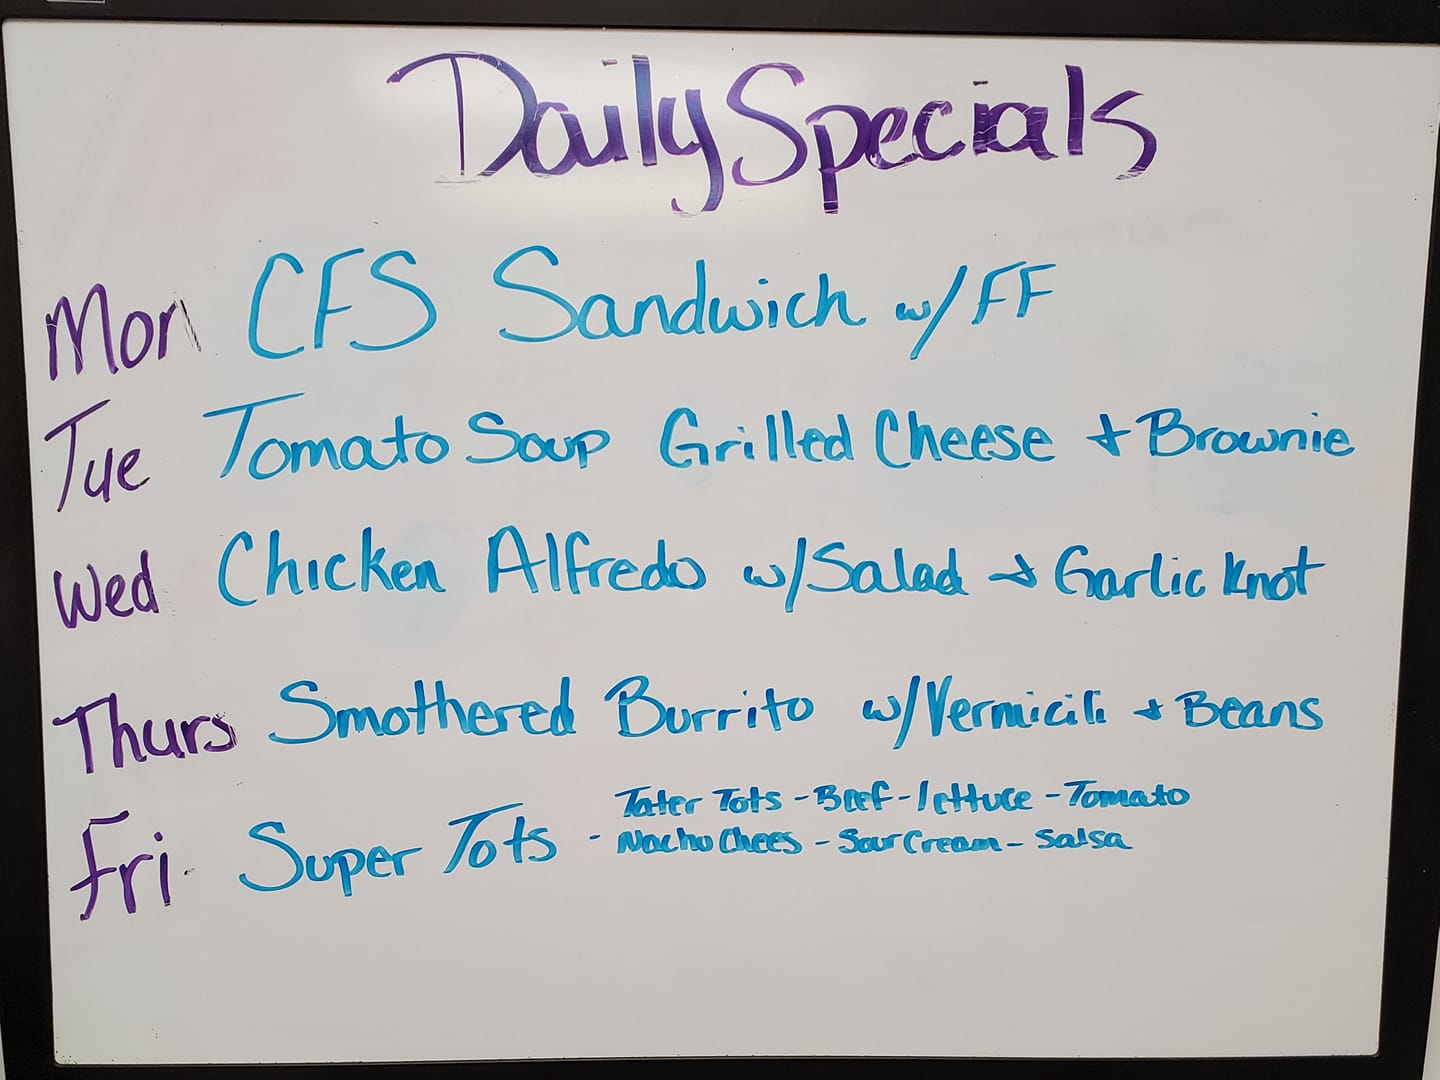 Daily Specials
Mon CFS Sandwich w/FF
Tue Tomato Soup Grilled Cheese + Brownie
Wed Chicken Alfredo w/Salad + Garlic Knot
Thurs Smothered Burrito w/Vermicili + Beans
Fri Super Tots - Tater Tots - Beef - lettuce - Tomato
- Nacho Chees - Sour Cream - Salsa